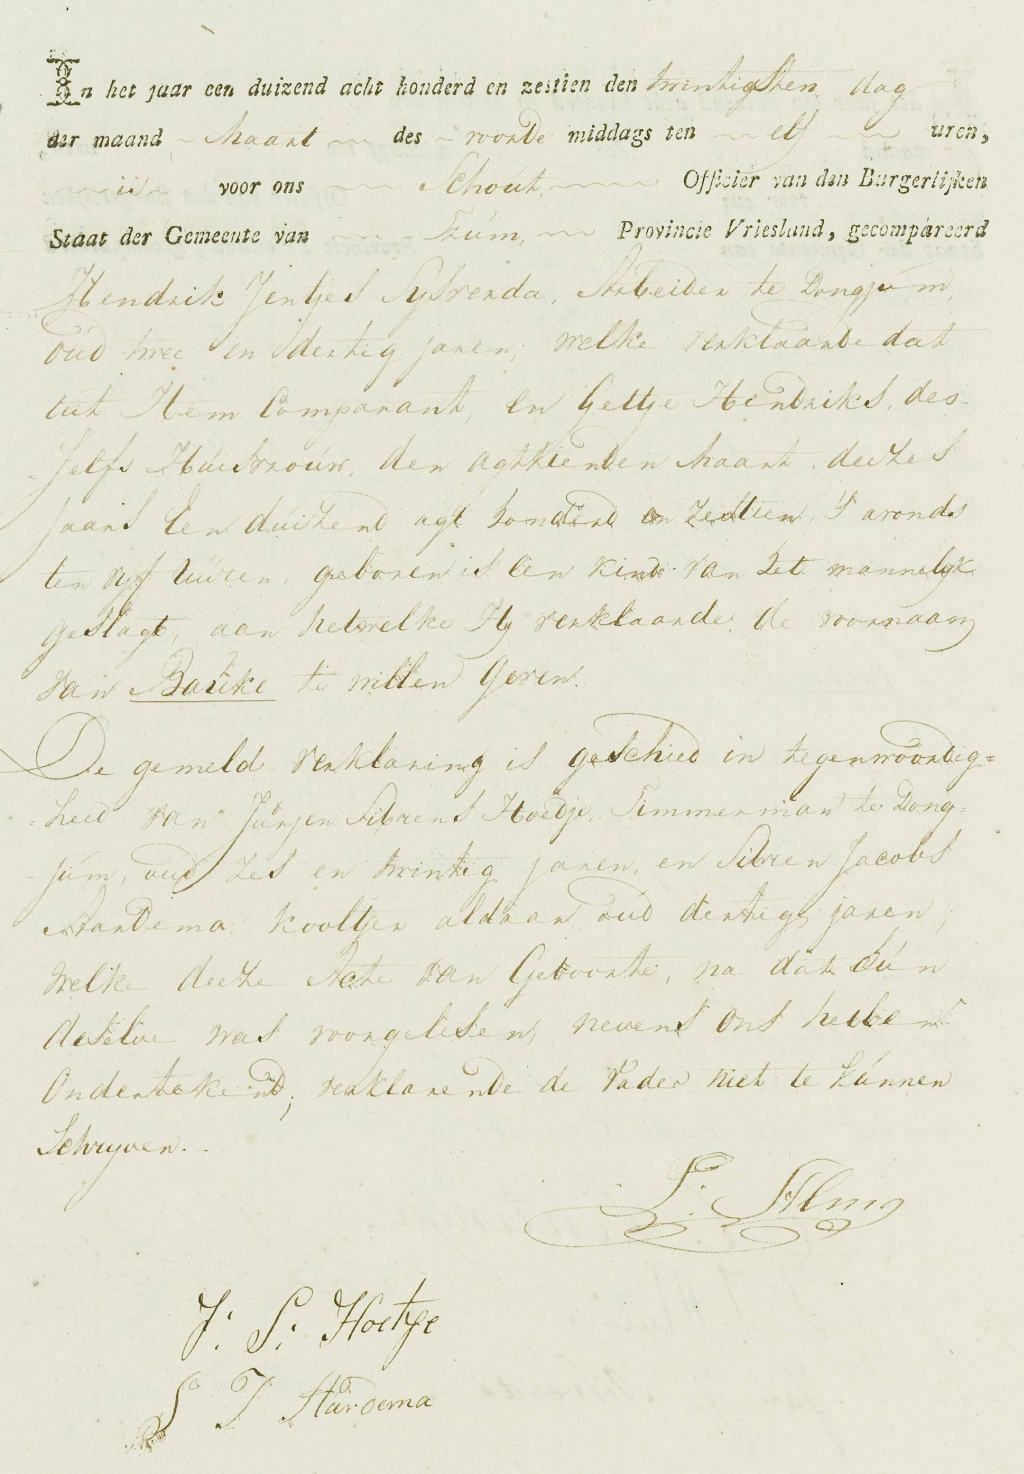 In het jaar een duizend acht honderd en zestien den twintigsten dag
der maand Maart des voorde middags ten elf uren,
is voor ons Schout, Officier van den Burgerlijken
Staat der Gemeente van Tzúm, Provincie Vriesland, gecompareerd
Hendrik Jentjes Sybrenda, Arbeider te Dongjúm,
oud twee en dertig jaren, welke verklaarde dat
uit Hem Comparant, en Geltje Hendriks, des-
selfs Húisvrouw, den agttienden Maart, deezes
jaars Een dúizend agt honderd en zestien, S avonds
ten vyf Uúren, geboren is Een kind van het mannelyk
geslagt, aan hetwelke Hy verklaarde de voornaam
van Bauke te willen Geven.
De gemelde verklaring is geschied in tegenwoordig=
=heid van Júrjen Sibrens Hoedje, Timmerman te Dong=
júm, oud zes en twintig jaren, en Sibren Jacobs
Hardema kooltjer aldaar oud dertig jaren,
welke deeze Acte van Geboorte, na dat hún
deselve was voorgelesen, nevens ons hebben
Ondertekend, verklarende de Vader niet te kúnnen
Schryven.
S: Alma
J: S: Hoetje
S J Hardema